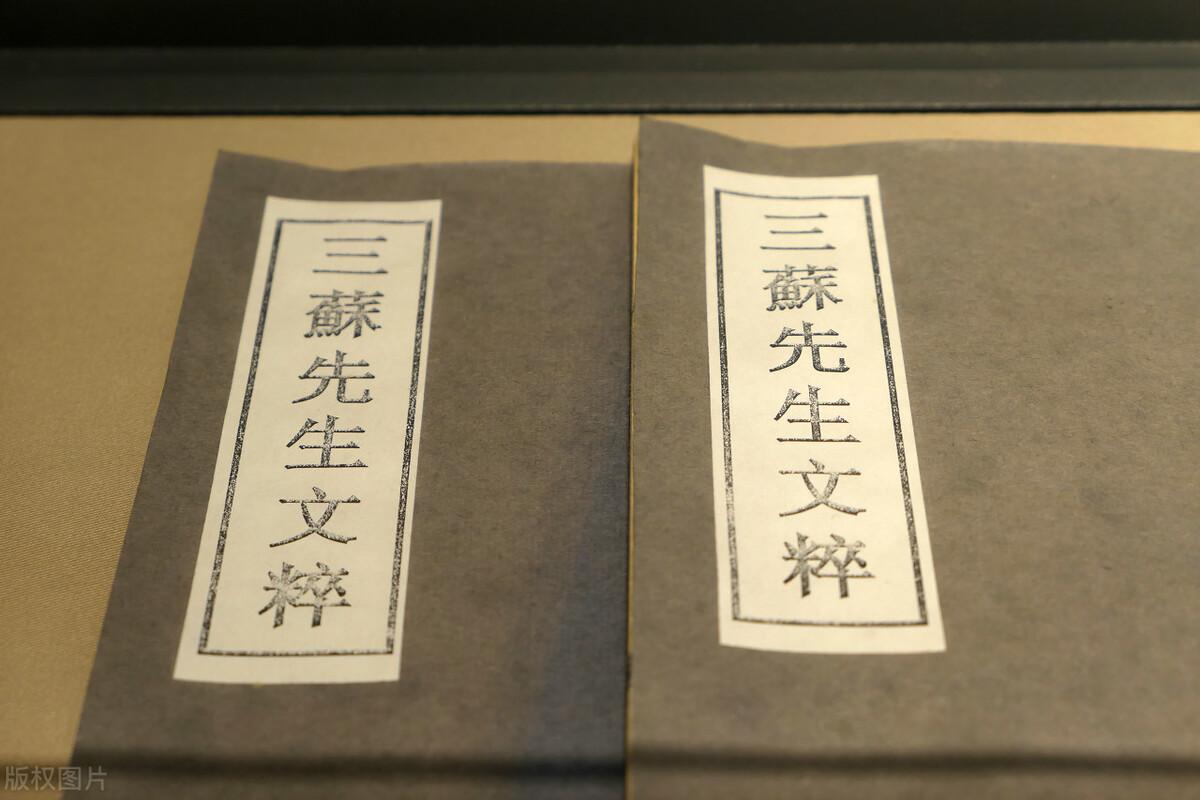 三蘇先生文粹
三蘇先生文粹
版权图片